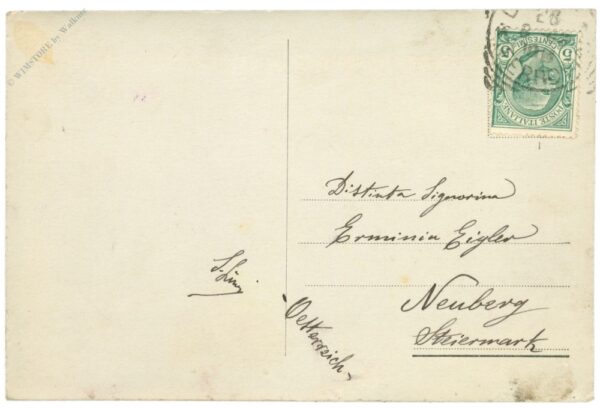 © WIMSTORE by Walkner
POSTE ITALIANE
CENTESIMI
5 5
Distinta Signorina
Erminia Eigler
Neuberg
Steiermark
Oesterreich